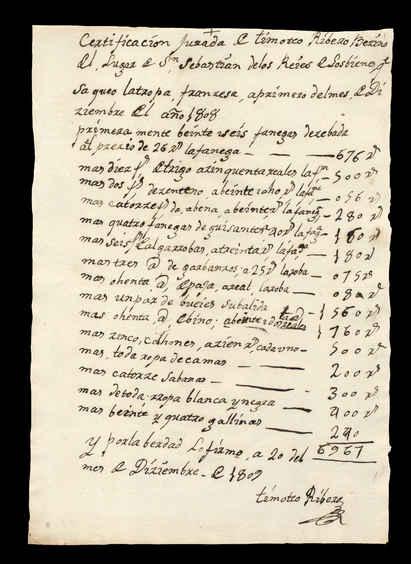 Certificacion Jurada de timoteo Ribero Bezino
del Lugar de Sn Sebastian de los Reies de los bienes q
saqueo la tropa franzesa, a primero del mes de Di
ziembre del año 1808
primera mente beinte i seis fanegas de zebada
al prezio de 26 rs la fanega — 676 rs
mas diez fs de trigo a zinquenta reales la fa — 500 rs
mas dos fs de zenteno, a beinte i ocho rs la fa — 056 rs
mas catorze fs de abena, a beinte rs la fanega — 280 rs
mas quatro fanegas de guisantes 40 rs la fa — 160 rs
mas seis fs de algarrobas, a treinta rs la fa — 180 rs
mas tres @ de garbanzos, a 25 rs la roba — 075 rs
mas ohenta @ de paja, a real la roba — 080 rs
mas un par de bueies su balida — 1560 rs
mas ohenta @ de bino, a beinte i dos reales — 1760 rs
mas zinco colhones, a zien rs cada uno — 500 rs
mas, toda ropa de camas — 200 rs
mas catorze sabanas — 300 rs
mas de toda rropa blanca y negra — 400 rs
mas beinte y quatro gallinas — 240
6967
Y por la berdad lo firmo, a 20 del
mes de Diziembre de 1809
timoteo Ribero